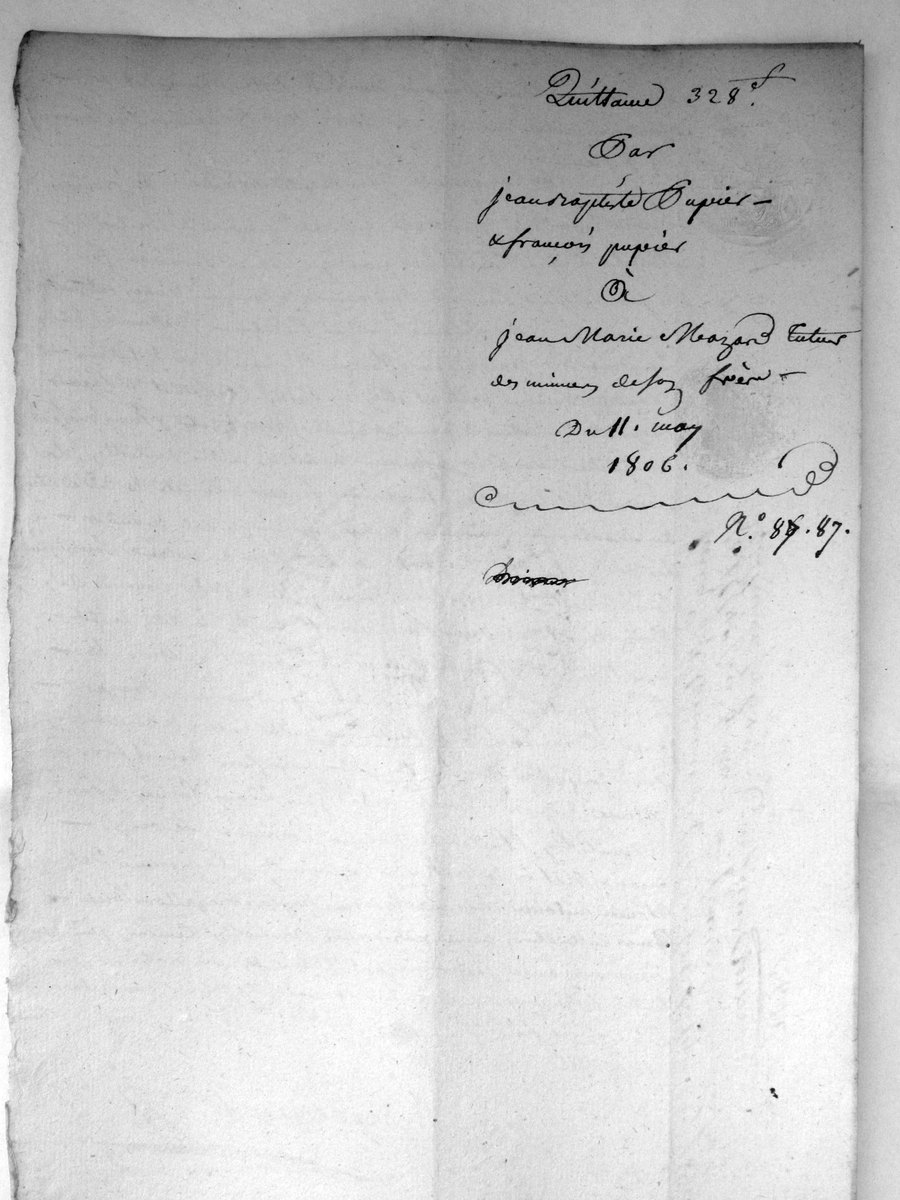 Quittance 328 f.
Par
jean Baptiste Pupier
& françois pupier
à
jean Marie Meazard tuteur
des mineurs de son frère
Du 11. may
1806.
N.° 86. 87.